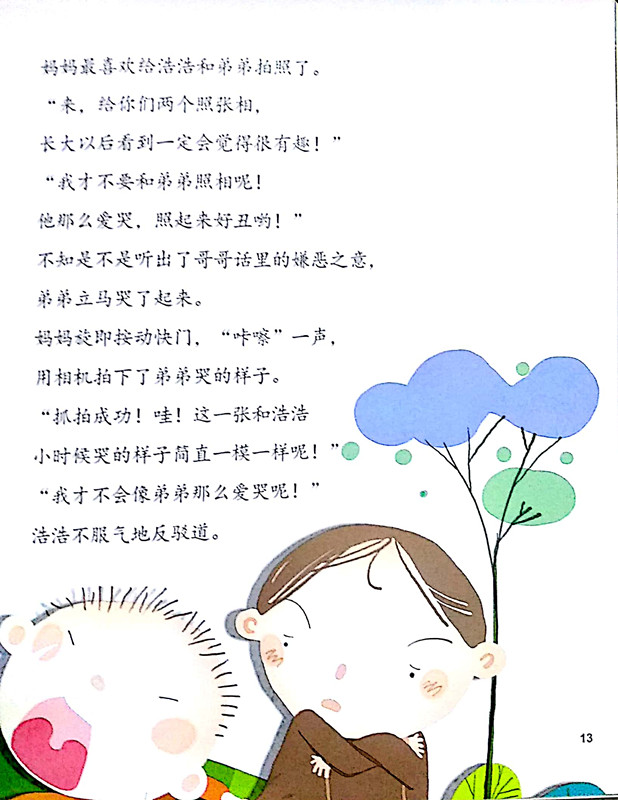 妈妈最喜欢给浩浩和弟弟拍照了。
“来，给你们两个照张相，
长大以后看到一定会觉得很有趣！”
“我才不要和弟弟照相呢！
他那么爱哭，照起来好丑哟！”
不知是不是听出了哥哥话里的嫌恶之意，
弟弟立马哭了起来。
妈妈旋即按动快门，“咔嚓”一声，
用相机拍下了弟弟哭的样子。
“抓拍成功！哇！这一张和浩浩
小时候哭的样子简直一模一样呢！”
“我才不会像弟弟那么爱哭呢！”
浩浩不服气地反驳道。
13